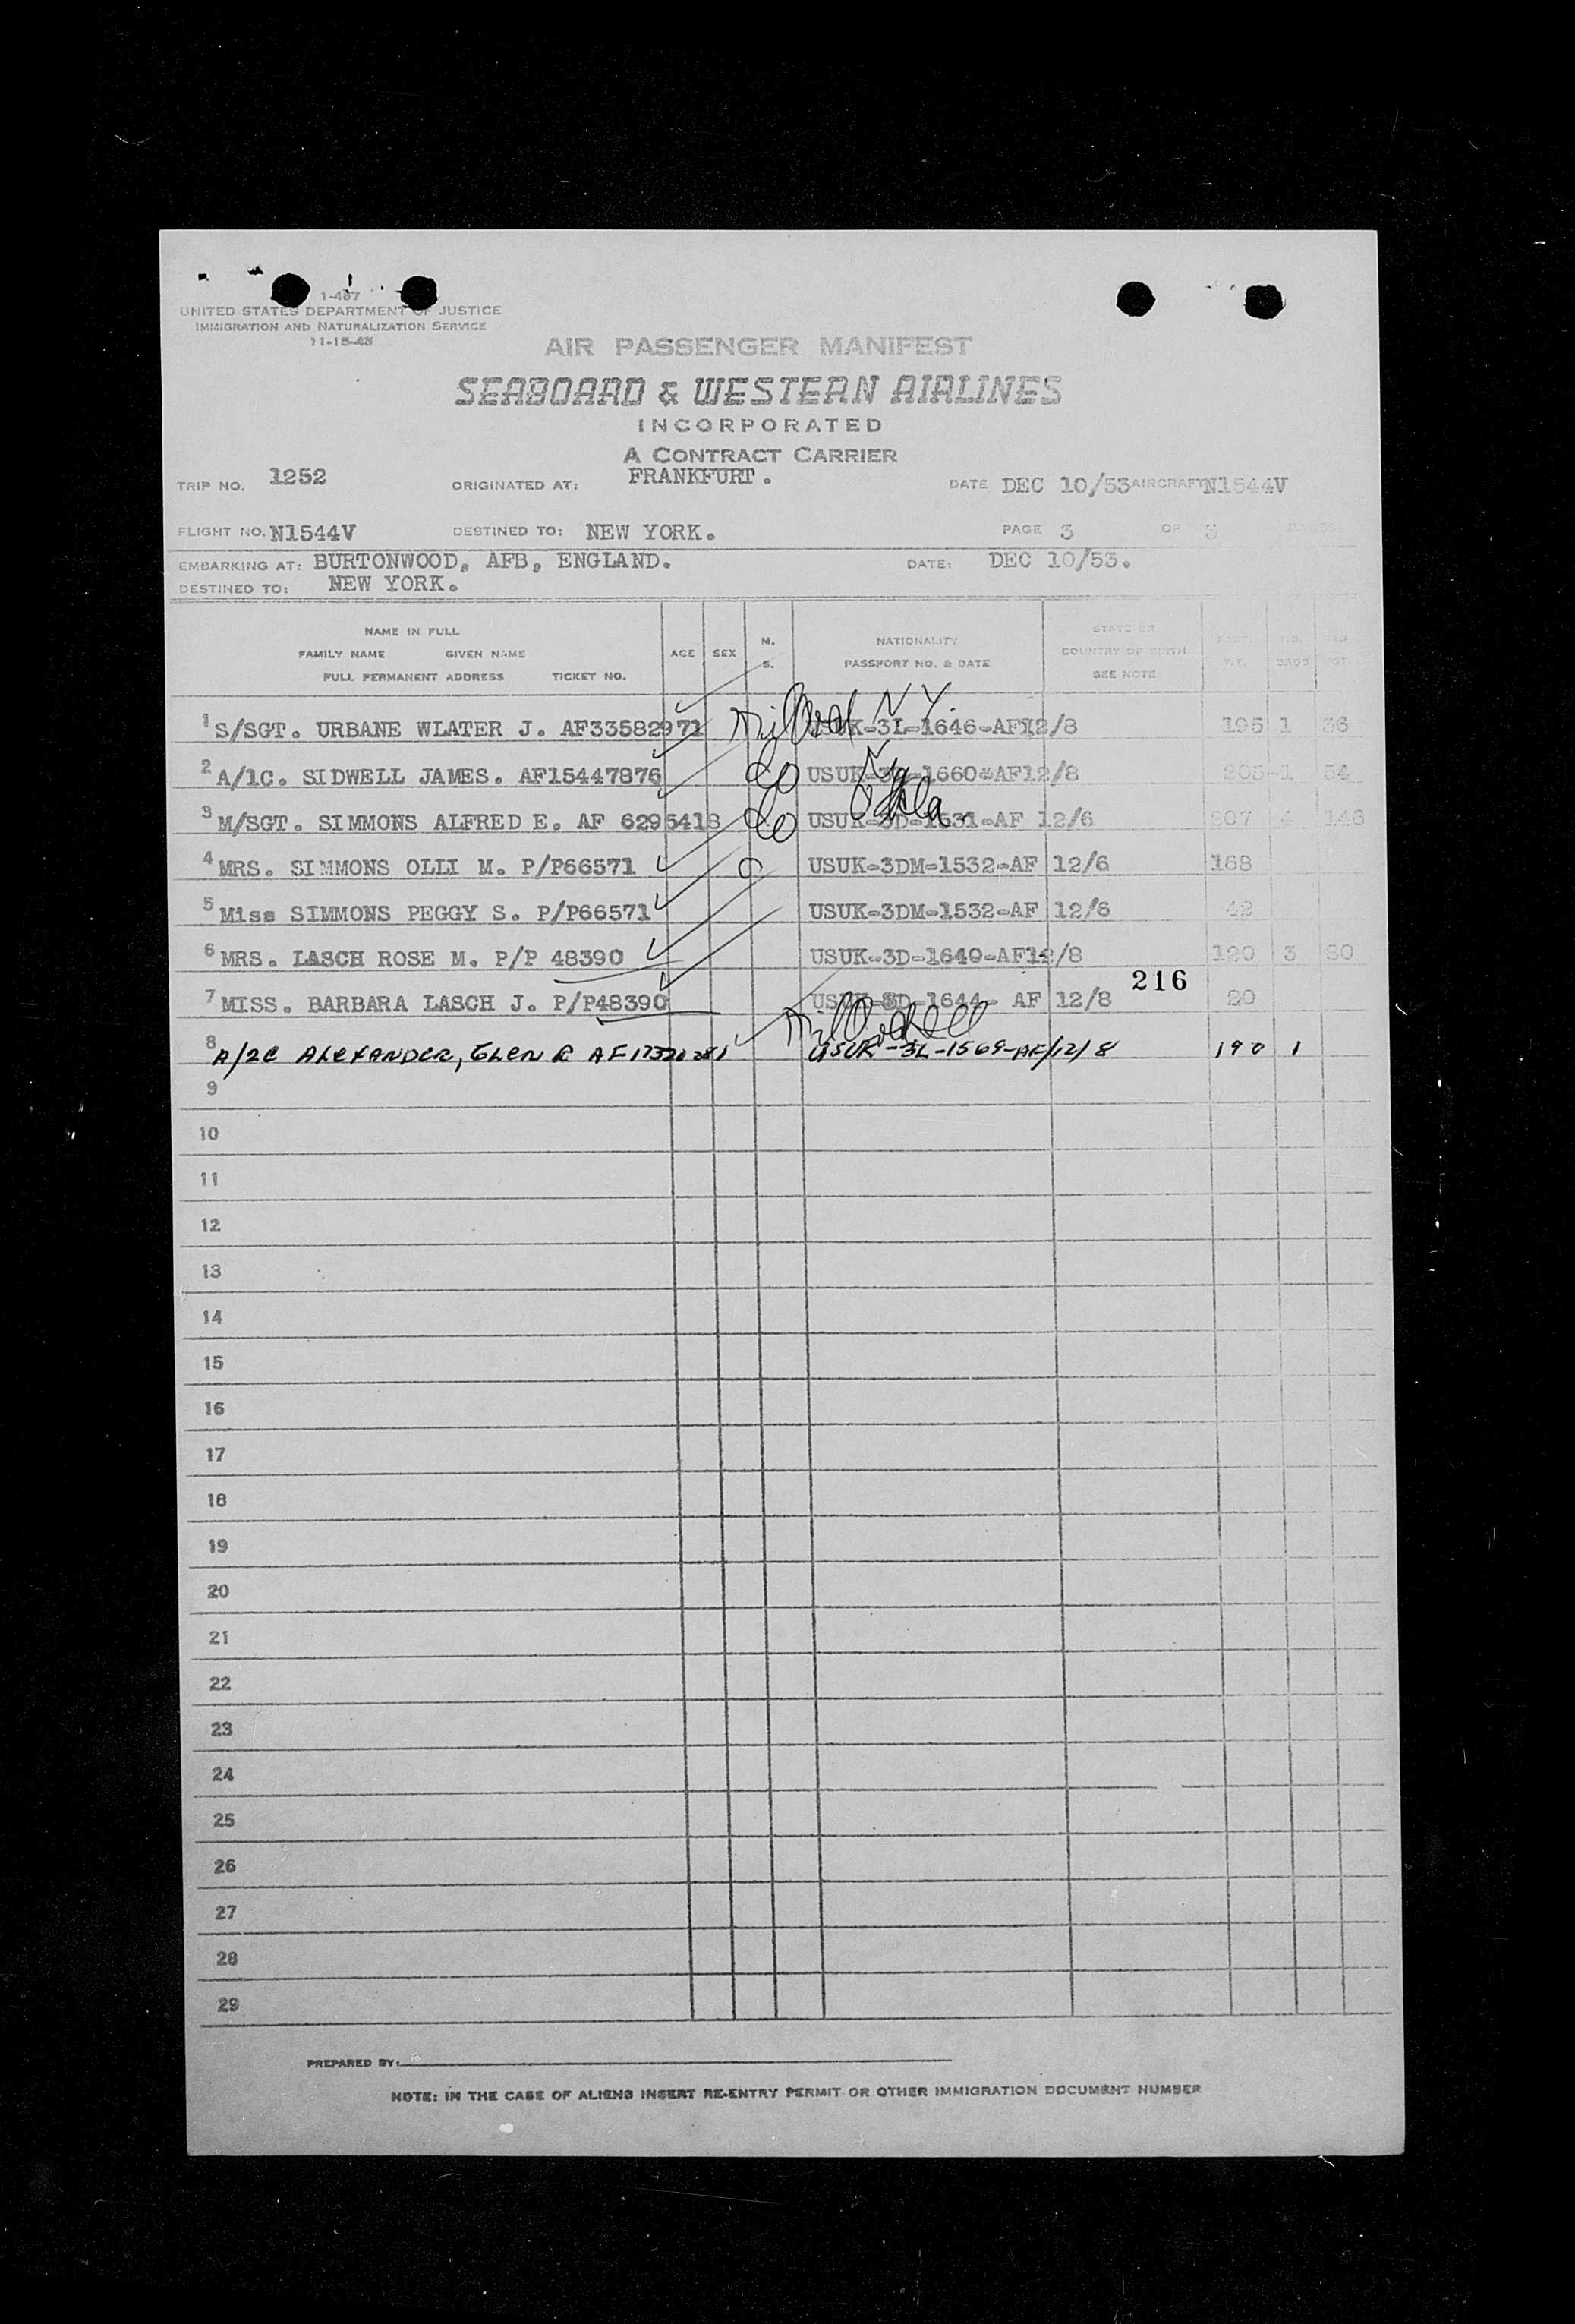 1-467
UNITED STATES DEPARTMENT OF JUSTICE
IMMIGRATION AND NATURALIZATION SERVICE
11-15-45
AIR PASSENGER MANIFEST
SEABOARD & WESTERN AIRLINES
INCORPORATED
A CONTRACT CARRIER
TRIP NO. 1252 ORIGINATED AT: FRANKFURT. DATE DEC 10/53 AIRCRAFT N1544V
FLIGHT NO. N1544V DESTINED TO: NEW YORK. PAGE 3 OF
EMBARKING AT: BURTONWOOD, AFB, ENGLAND. DATE: DEC 10/53.
DESTINED TO: NEW YORK.
NAME IN FULL
FAMILY NAME GIVEN NAME
FULL PERMANENT ADDRESS TICKET NO.
AGE SEX M. S. NATIONALITY PASSPORT NO. & DATE STATE OR COUNTRY OF BIRTH SEE NOTE NO. BAGS
1 S/SGT. URBANE WLATER J. AF33582971 N.Y. USUK-3L-1646-AF12/8 195 1 36
2 A/1C. SIDWELL JAMES. AF15447876 USUK-3L-1660-AF12/8 205-1 54
3 M/SGT. SIMMONS ALFRED E. AF 6295418 USUK-3D-1531-AF 12/6 207 4 146
4 MRS. SIMMONS OLLI M. P/P66571 USUK-3DM-1532-AF 12/6 168
5 Miss SIMMONS PEGGY S. P/P66571 USUK-3DM-1532-AF 12/6 42
6 MRS. LASCH ROSE M. P/P 48390 USUK-3D-1640-AF12/8 120 3 80
216
7 MISS. BARBARA LASCH J. P/P48390 USUK-3D-1644- AF 12/8 20
8 A/2C ALEXANDER, GLEN R AF17321281 USUK-3L-1569-AF/12/8 190 1
9
10
11
12
13
14
15
16
17
18
19
20
21
22
23
24
25
26
27
28
29
PREPARED BY:
NOTE: IN THE CASE OF ALIENS INSERT RE-ENTRY PERMIT OR OTHER IMMIGRATION DOCUMENT NUMBER